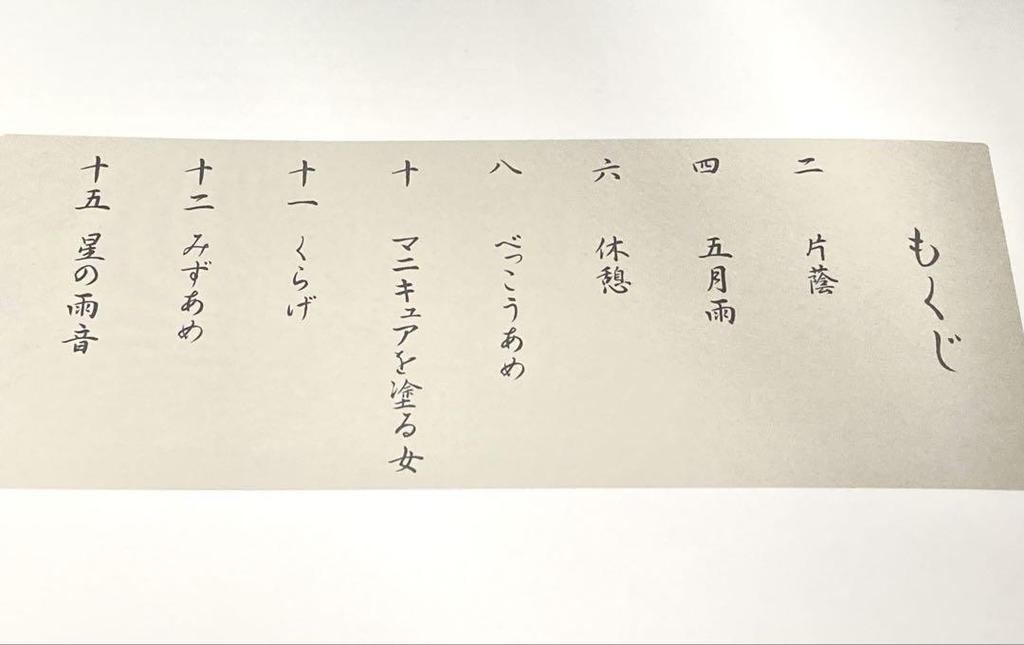 もくじ
二 片蔭
四 五月雨
六 休憩
八 べっこうあめ
十 マニキュアを塗る女
十一 くらげ
十二 みずあめ
十五 星の雨音